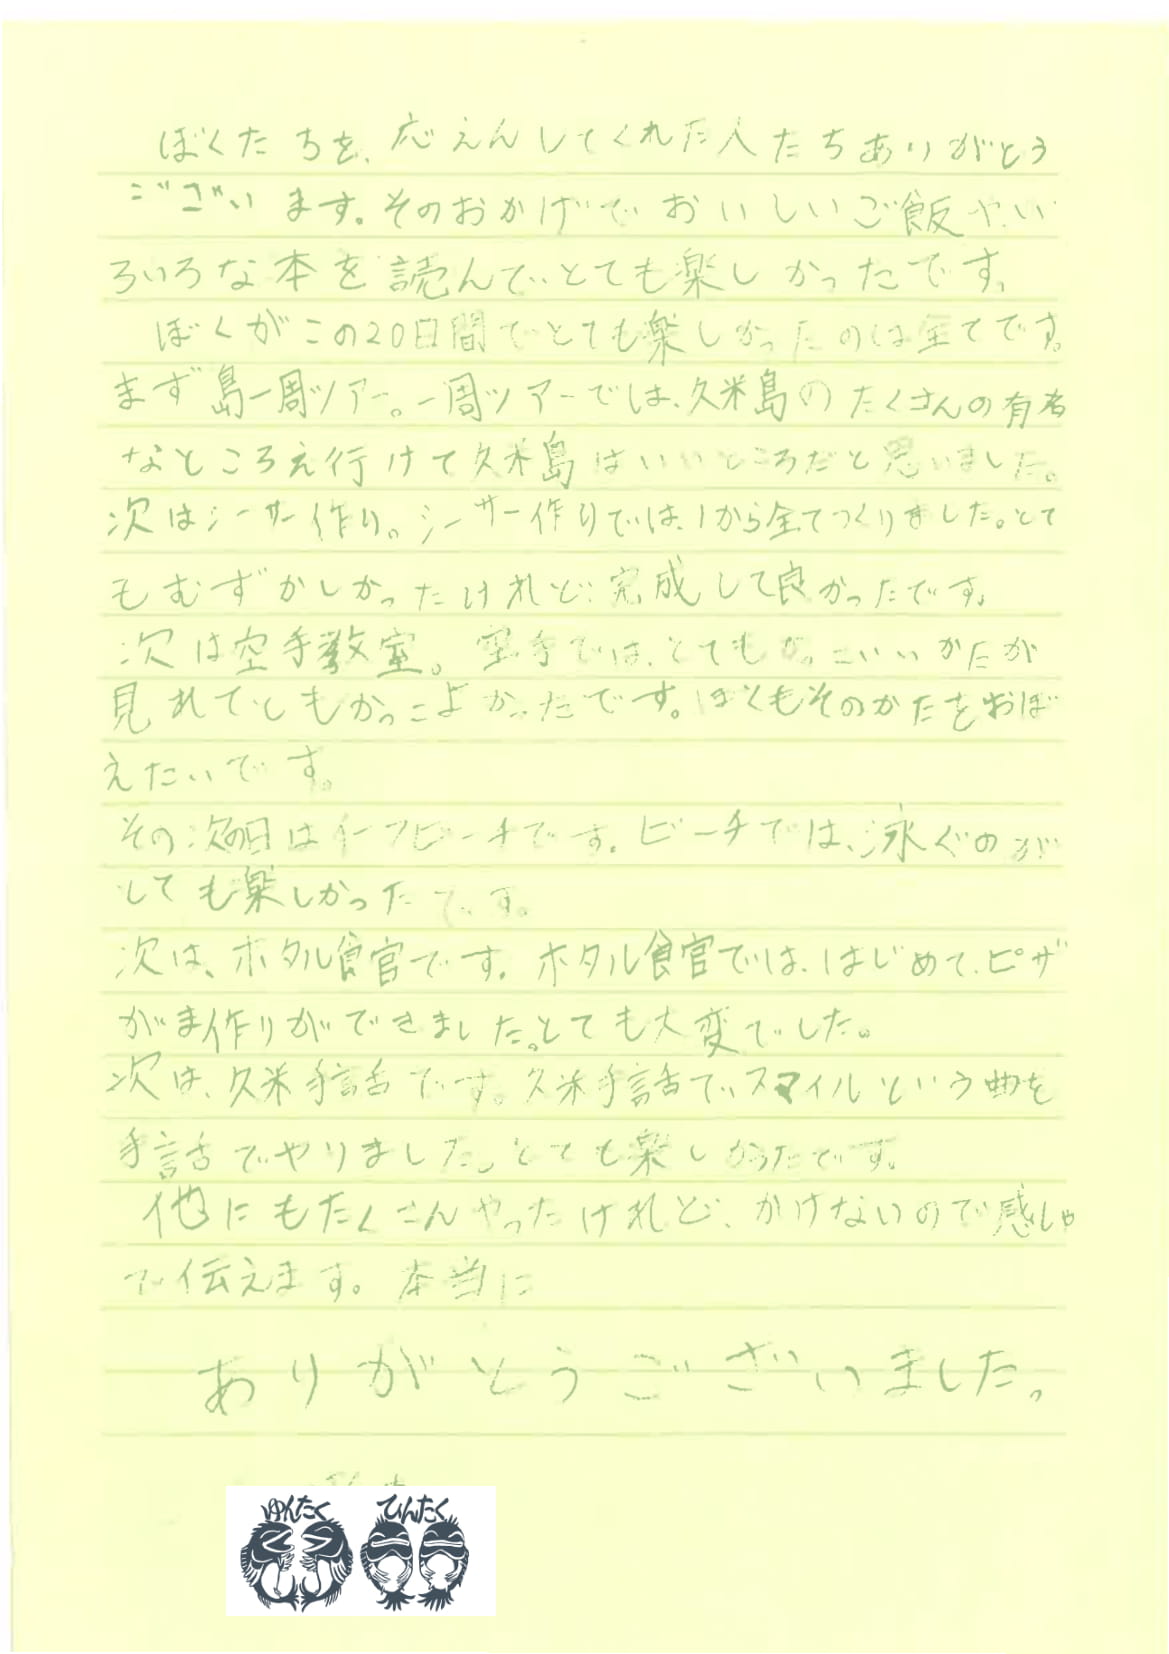 ぼくたちを、応えんしてくれた人たちありがとう
ございます。そのおかげでおいしいご飯や、い
ろいろな本を読んで、とても楽しかったです。
ぼくがこの20日間でとても楽しかったのは全てです。
まず島一周ツアー。一周ツアーでは、久米島のたくさんの有名
なところえ行けて久米島はいいところだと思いました。
次はシーサー作り。シーサー作りでは、1から全てつくりました。とて
もむずかしかったけれど、完成して良かったです。
次は空手教室。空手では、とてもかっこいいかたが
見れてともかっこよかったです。ぼくもそのかたをおぼ
えたいです。
その次の日はイーフビーチです。ビーチでは、泳ぐのが
とても楽しかったです。
次は、ホタル食官です。ホタル食官では、はじめて、ピザ
がま作りができました。とても大変でした。
次は、久米手話です。久米手話で、スマイルという曲を
手話でやりました。とても楽しかったです。
他にもたくさんやったけれど、かけないので感しゃ
で伝えます。本当に
ありがとうございました。
ゆんたく ひんたく